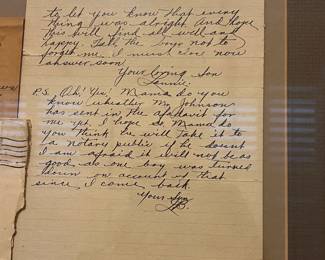 to let you know that every
thing was alright and hope
this will find all well and
happy. Tell the boys not to
forget me. I must close now
answer soon
Your loving Son
P.S. Oh! Yes! Mama do you
know whether Mr Johnson
has sent in the affidavit for
me yet. I hope so Mama do
you think he will take it to
a notary public if he doesnt
I am afraid it will not be as
good, as one boy was turned
down on account of that
since I come back.
Your Son